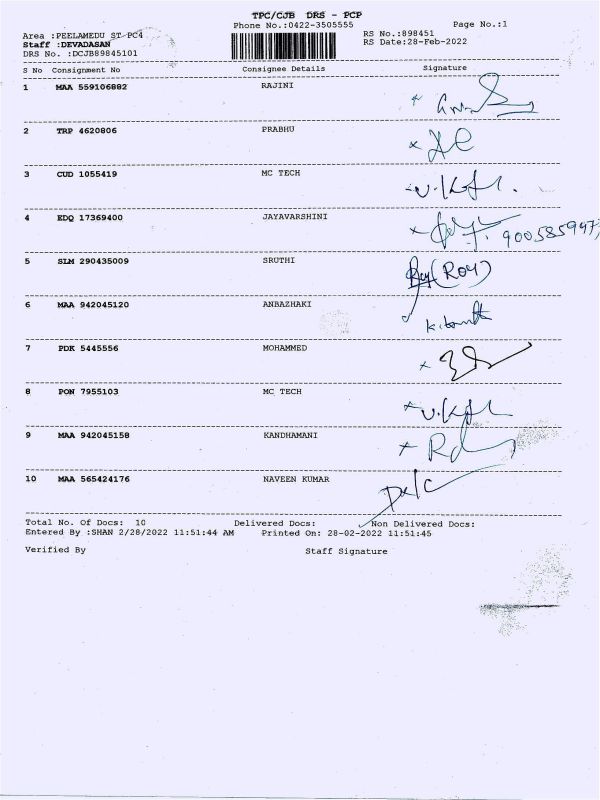 TPC/CJB DRS - PCP
Phone No.:0422-3505555 Page No.:1
Area :PEELAMEDU ST PC4 RS No.:898451
Staff :DEVADASAN RS Date:28-Feb-2022
DRS No. :DCJB89845101
S No Consignment No Consignee Details Signature
1 MAA 559106882 RAJINI
2 TRP 4620806 PRABHU
3 CUD 1055419 MC TECH
4 EDQ 17369400 JAYAVARSHINI
5 SLM 290435009 SRUTHI (ROY)
6 MAA 942045120 ANBAZHAKI
7 PDK 5445556 MOHAMMED
8 PON 7955103 MC TECH
9 MAA 942045158 KANDHAMANI
10 MAA 565424176 NAVEEN KUMAR
Total No. Of Docs: 10 Delivered Docs: Non Delivered Docs:
Entered By :SHAN 2/28/2022 11:51:44 AM Printed On: 28-02-2022 11:51:45
Verified By Staff Signature